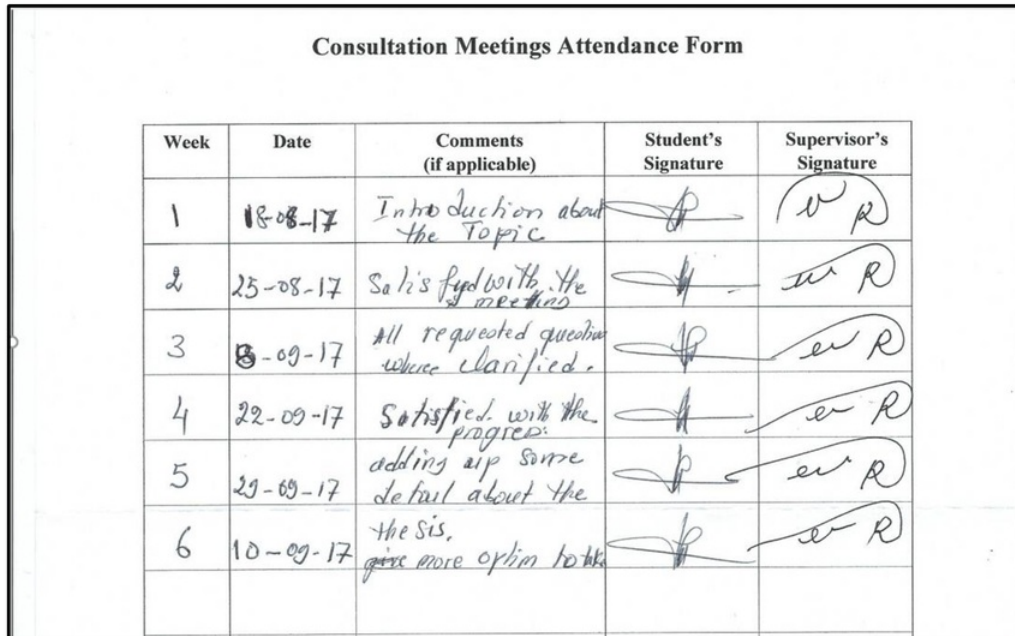 Consultation Meetings Attendance Form
Week Date Comments (if applicable) Student's Signature Supervisor's Signature
1 18-08-17 Introduction about
the Topic
2 25-08-17 Satisfyd with the
meeting
3 8-09-17 All requested question
where clarified.
4 22-09-17 Satisfied with the
progress.
5 29-09-17 adding up some
detail about the
6 10-09-17 thesis.
give more optim to